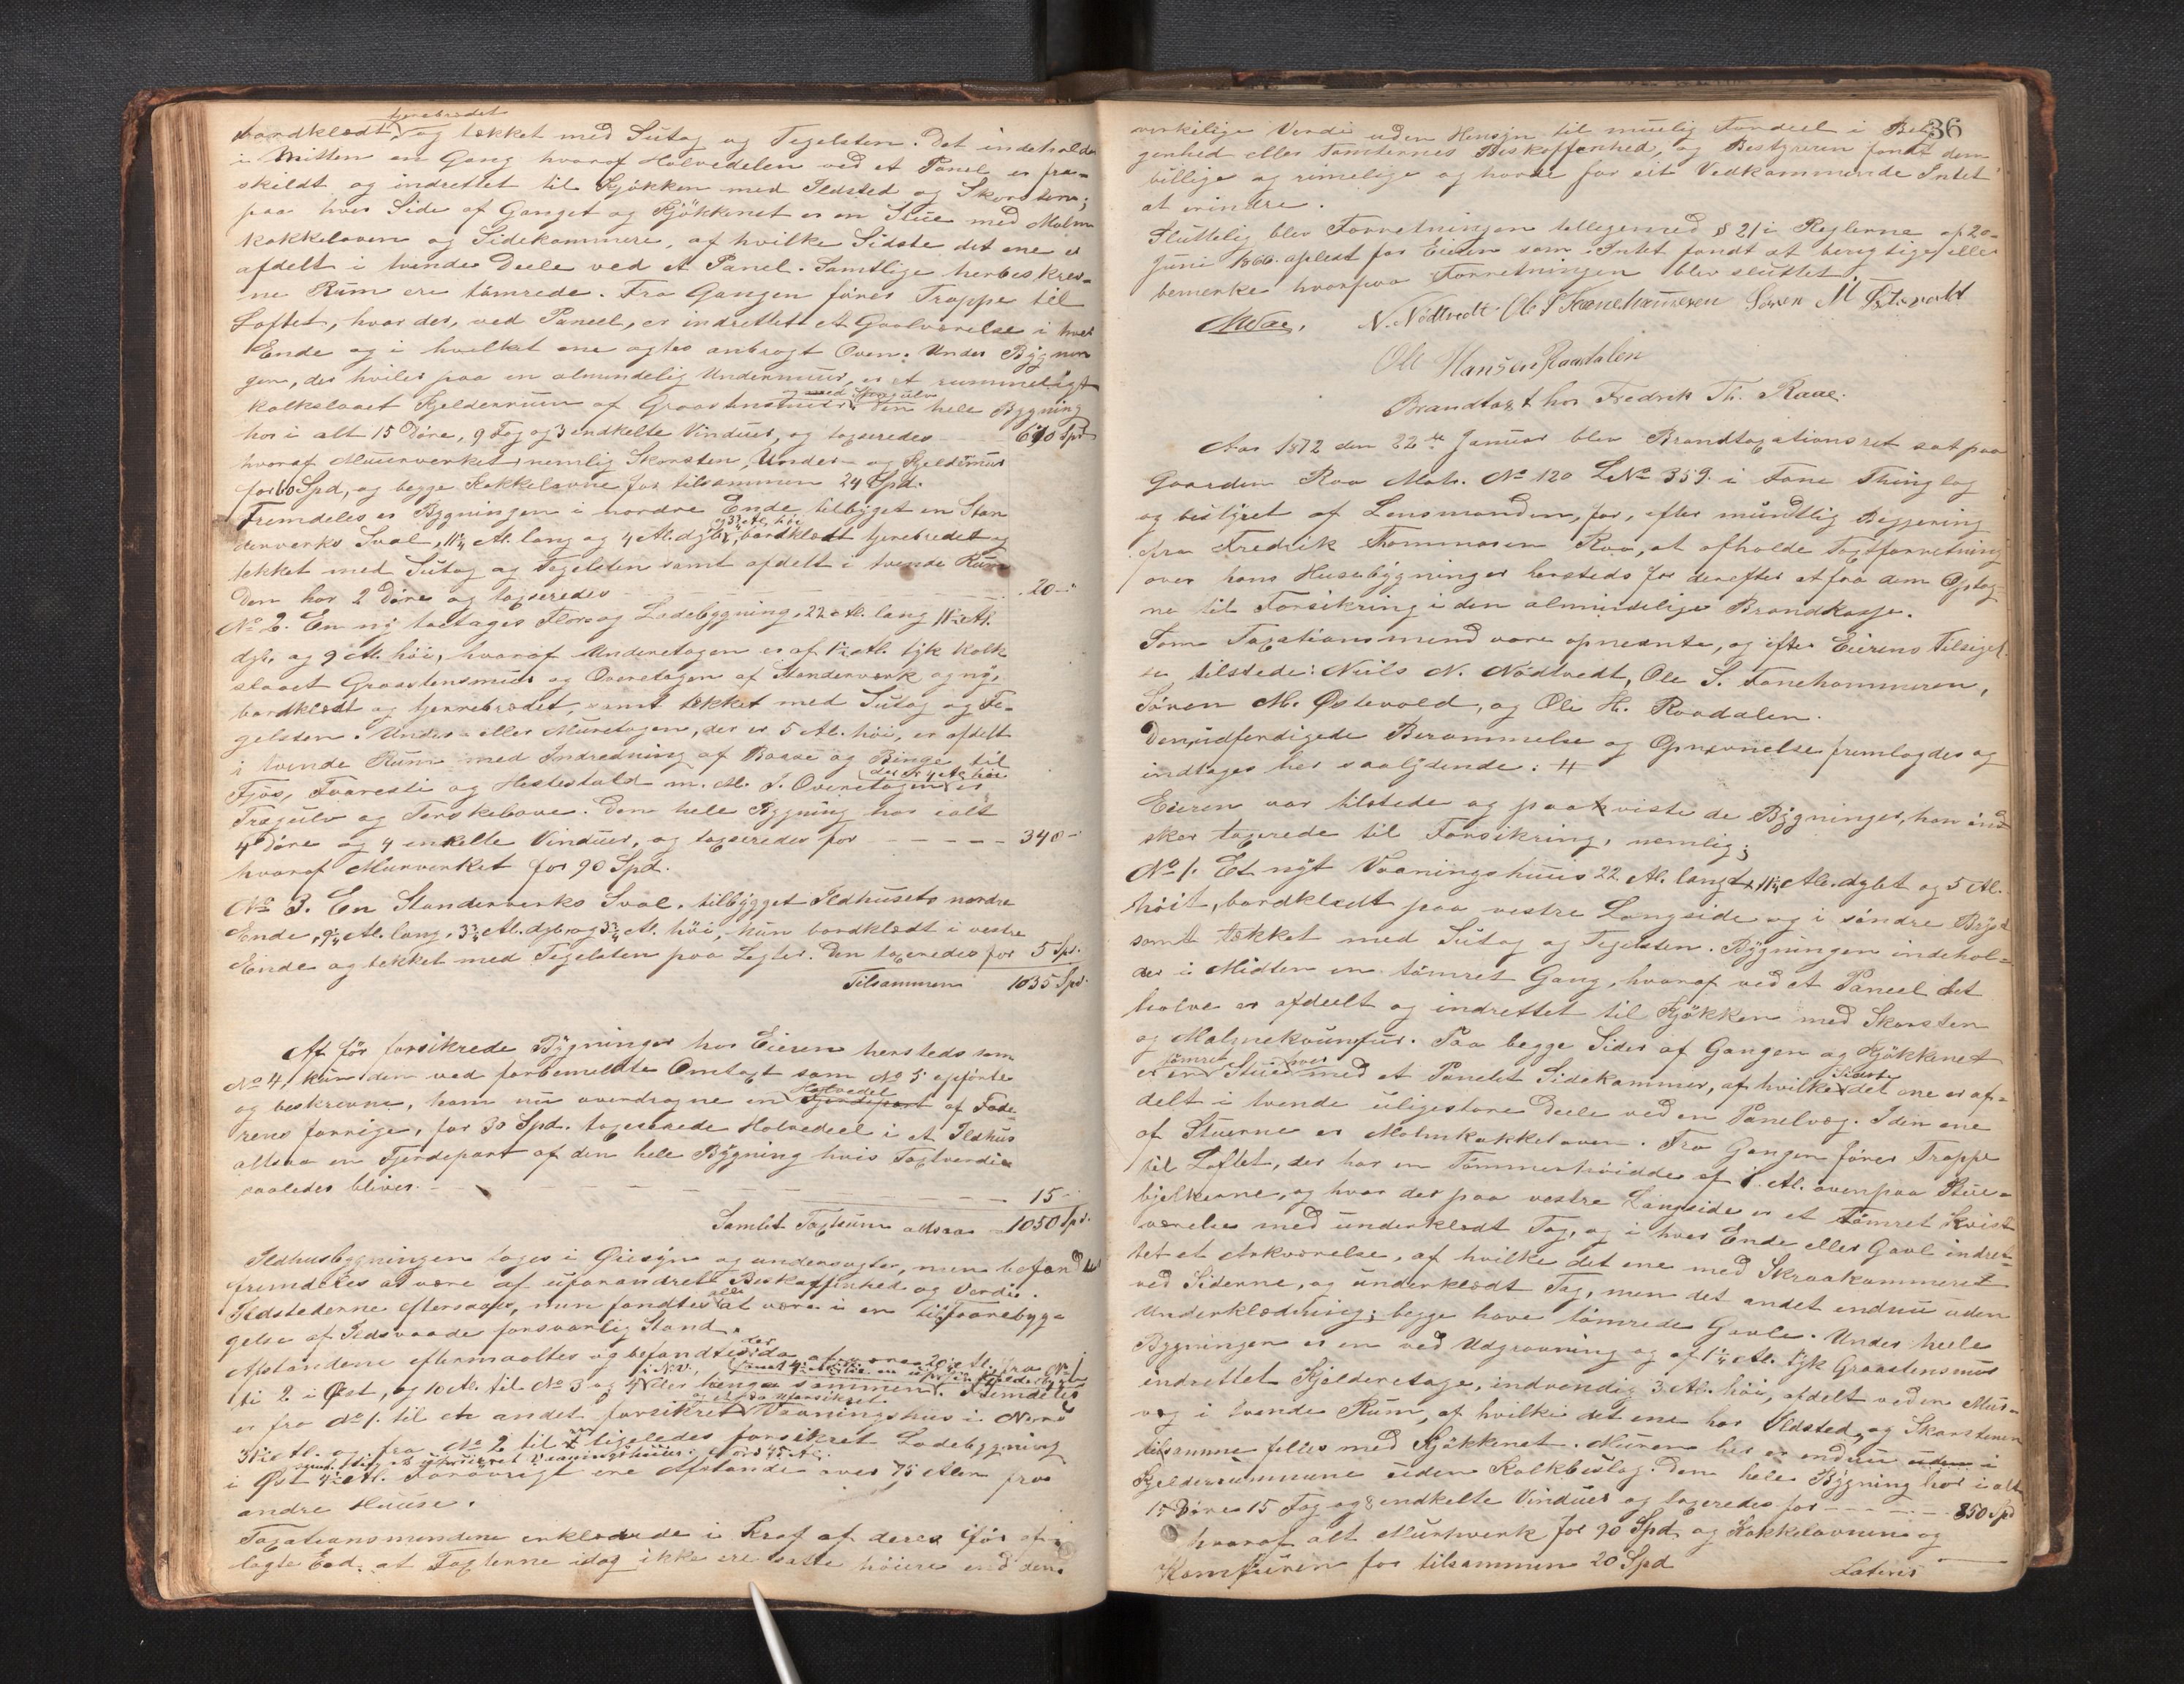 tjærebrædet
bordklædt, og tækket med Sutag og Tegelsten. Det indeholder
i Mitten en Gang hvoraf Halvedelen ved et Panel er fra-
skildt og indrettet til Kjökken med Ildsted og Skorsten;
paa hver Side af Ganget og Kjökkenet er en Stue med Malm
kakkelovn og Sidekammere, af hvilke Sidste det ene er
afdelt i tvende Deele ved et Panel. Samtlige herbeskrev-
ne Rum ere tömrede. Fra Gangen förer Trappe til
Loftet, hvor der, ved Paneel, er indrettet et Gavlværelse i hver
Ende og i hvilket ene agtes anbragt Oven. Under Bygnin
gen, der hviler paa en almindelig Undermuur, er et rummeligt
kalkslaaet Kjelderrum af Graastensmuur og med Spragulv. Den hele Bygning
har i alt 15 Döre, 9 Fag og 3 endkelte Vinduer, og taxeredes 670 Spd
hvoraf Muurverket, nemlig Skorsten, Under- og Kjeldermuur
for 60 Spd, og begge Kakkelovne for tilsammen 24 Spd.
Fremdeles er Bygningen i nordre Ende tilbygget en Stan
derverks Sval, 11¼ Al. lang og 4 Al. dyb og 3¾ Al. höi, bordklædt tjærebrædet og
tækket med Sutag og Tegelsten samt afdelt i tvende Rum
Den har 2 Döre og taxeredes 20 -"
No 2. En ny toetages Flor og Ladebygning, 22 Al. lang 11½ Al.
dyb, og 9 Al. höi, hvoraf Underetagen er af 1½ Al. tyk kalk
slaaet Graastensmuur og Overetagen af Standerverk og ny,
bordklædt og tjærebrædet, samt tækket med Sutag og Te-
gelsten. Under- eller Muretagen, der er 5 Al. höi, er afdelt
i tvende Rum med Indredning af Baase og Binge til
Fjös, Faaresti og Hestestald m. M. I Overetagen der er 4 Al. höi er
Trægulv og Tærskelaave. Den hele Bygning har ialt
4 Döre og 4 enkelte Vinduer, og taxeredes for 340 -
hvoraf Murverket for 90 Spd.
No 3. En Standerverks Sval, tilbygget Ildhusets nordre
Ende, 9¼ Al. lang, 3¾ Al. dyb og 3¾ Al. höi, kun bordklædt i vestre
Ende og tækket med Tegelsten paa Legter. Den taxeredes for 5 Spd.
Tilsammen 1035 Spd.
Af för forsikrede Bygninger har Eieren hersteds som
No 4, kun den ved forbemeldte Omtaxt som No 5 opförte
og beskrevne, ham nu overdragne en Fjerdepart Halvedel af Fade
rens forrige, for 30 Spd. taxerede Halvedeel i et Ildhus
altsaa en Fjerdepart af den hele Bygning hvis Taxtverdie
saaledes bliver 15 -
Samlet Taxtsum altsaa 1050 Spd.
Ildhusbygningen toges i Öiesyn og undersögtes, men befandtes
fremdeles at være af uforandret Beskaffenhed og Verdie.
Ildstederne eftersaaes, men fandtes alle at være i en til Forebyg-
gelse af Ildsvaade forsvarlig Stand.
Afstandene eftermaaltes og befandtes
til 2 i Öst, og 10 Al. til No 3 og 4 der hænge sammen. Fremdeles
er fra No 1. til et andet forsikret Vaaningshus i Nord
31½ Al. og fra No 2 til et ligeledes forsikret Ladebygning
i Öst 4½ Al. Forövrigt ere Afstande over 75 Alen fra
andre Huuse.
Taxationsmendene erklærede i Kraf af deres för af-
lagte Eed, at Taxterne idag ikke ere satte höiere end den
36
virkelige Verdi uden Hensyn til muelig Fordeel i Beli
genhed eller Tomternes Beskaffenhed, og Bestyreren fandt dem
billige og rimelige og havde for sit Vedkommende Intet
at erindre.
Sluttelig blev Forretningen tilligemed § 21 i Reglerne af 20de
Juni 1866 oplæst for Eieren som Intet fandt at berigtige eller
bemerke hvorpaa Forretningen blev sluttet.
N. Nödtvedt. Ole S Fanehammeren Sören M Östevold
Ole Hansen Raadalen
Brandtaxt hos Fredrik Th. Raae.
Aar 1872 den 22de Januar blev Brandtaxationsret sat paa
Gaarden Raa Matr. No 120 LNo 359 i Fane Thinglag
og bestyret af Lensmanden, for, efter mundtlig Begjering
fra Fredrik Thommasen Raa, at afholde Taxtforretning
over hans Husebygninger hersteds for derefter at faa dem Optag-
ne til Forsikring i den almindelige Brandkasse.
Som Taxationsmænd vare opnævnte, og efter Eierens Tilsigel
se tilstede: Neils N. Nödtvedt, Ole S. Fanehammeren,
Sören M. Østevold, og Ole H. Raadalen.
Den udferdigede Berammelse og Opnævnelse fremlagdes og
indtages her saalydende: #
Eieren var tilstede og paaviste de Bygninger, han önd
sker taxerede til Forsikring, nemlig;
No 1. Et nyt Vaaningshuus 22 Al. langt, 11¼ Al. dybt og 5 Al.
höit, bordklædt paa vestre Langside og i söndre Bryst
samt tækket med Sutag og Tegelsten. Bygningen indehol-
der i Midten en tömret Gang, hvoraf ved et Paneel det
halve er afdeelt og indrettet til Kjökken med Skorsten
og Malmekomfur. Paa begge Sider af Gangen og Kjökkenet
er en tömret Stue hver med et Panelet Sidekammer, af hvilke Sidste det ene er af-
delt i tvende uligestore Deele ved en Panelvæg. I den ene
af Stuerne er Malmkakkelovn. Fra Gangen förer Trappe
til Loftet, der har en Tömmerhöidde af 1. Al. ovenpaa Stue-
bjelkerne, og hvor der paa vestre Langside er et tömret Kvist
værelse med underklædt Tag, og i hver Ende eller Gavl indret-
tet et Arkværelse, af hvilke det ene med Skraakammeret
ved Siderne, og underklædt Tag, men det andet endnu uden
Underklædning; begge have tömrede Gavle. Under heele
Bygningen er en ved Udgravning og af 1¼ Al. tyk Graastensmur
indrettet Kjelderetage, indvendig 3 Al. höi, afdelt ved en Mur-
væg i tvende Rum, af hvilke det ene har Ildsted, og Skorstenen
tilsamme fælles med Kjökkenet. Muren her er endnu uden i
Kjelderrummene uden Kalkbeslag. Den hele Bygning har i alt
15 Döre 15 Fag og 8 endkelte Vinduer og taxeredes for 850 Spd
hvoraf alt Murhverk for 90 Spd og Kakkelovnen og
Komfuren for tilsammen 20 Spd
Lateris